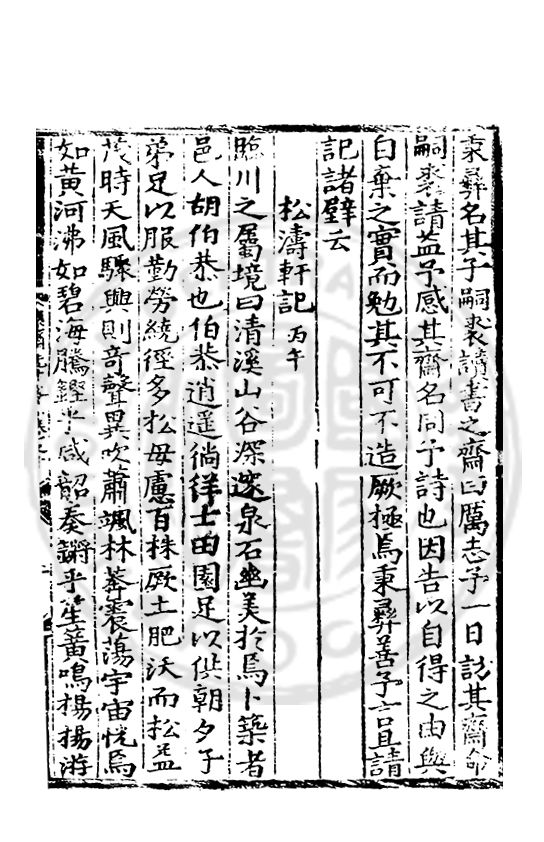 秉彝名其子嗣裘讀書之齋曰厲志予一日訪其齋命
嗣裘請益予感其齋名同予詩也因告以自得之由與
自棄之實而勉其不可不造厥極焉秉彝善予言且請
記諸壁云
松濤軒記丙午
臨川之屬境曰清溪山谷深邃泉石幽美於焉卜築者
邑人胡伯恭也伯恭逍遥徜徉士由園足以供朝夕子
弟足以服勤勞繞徑多松毋慮百株厥土肥沃而松益
茂時天風驟興則奇聲異吹蕭颯林莽震蕩宇宙恍焉
如黃河沸如碧海騰鏗乎咸韶奏鏘乎笙簧鳴揚揚游